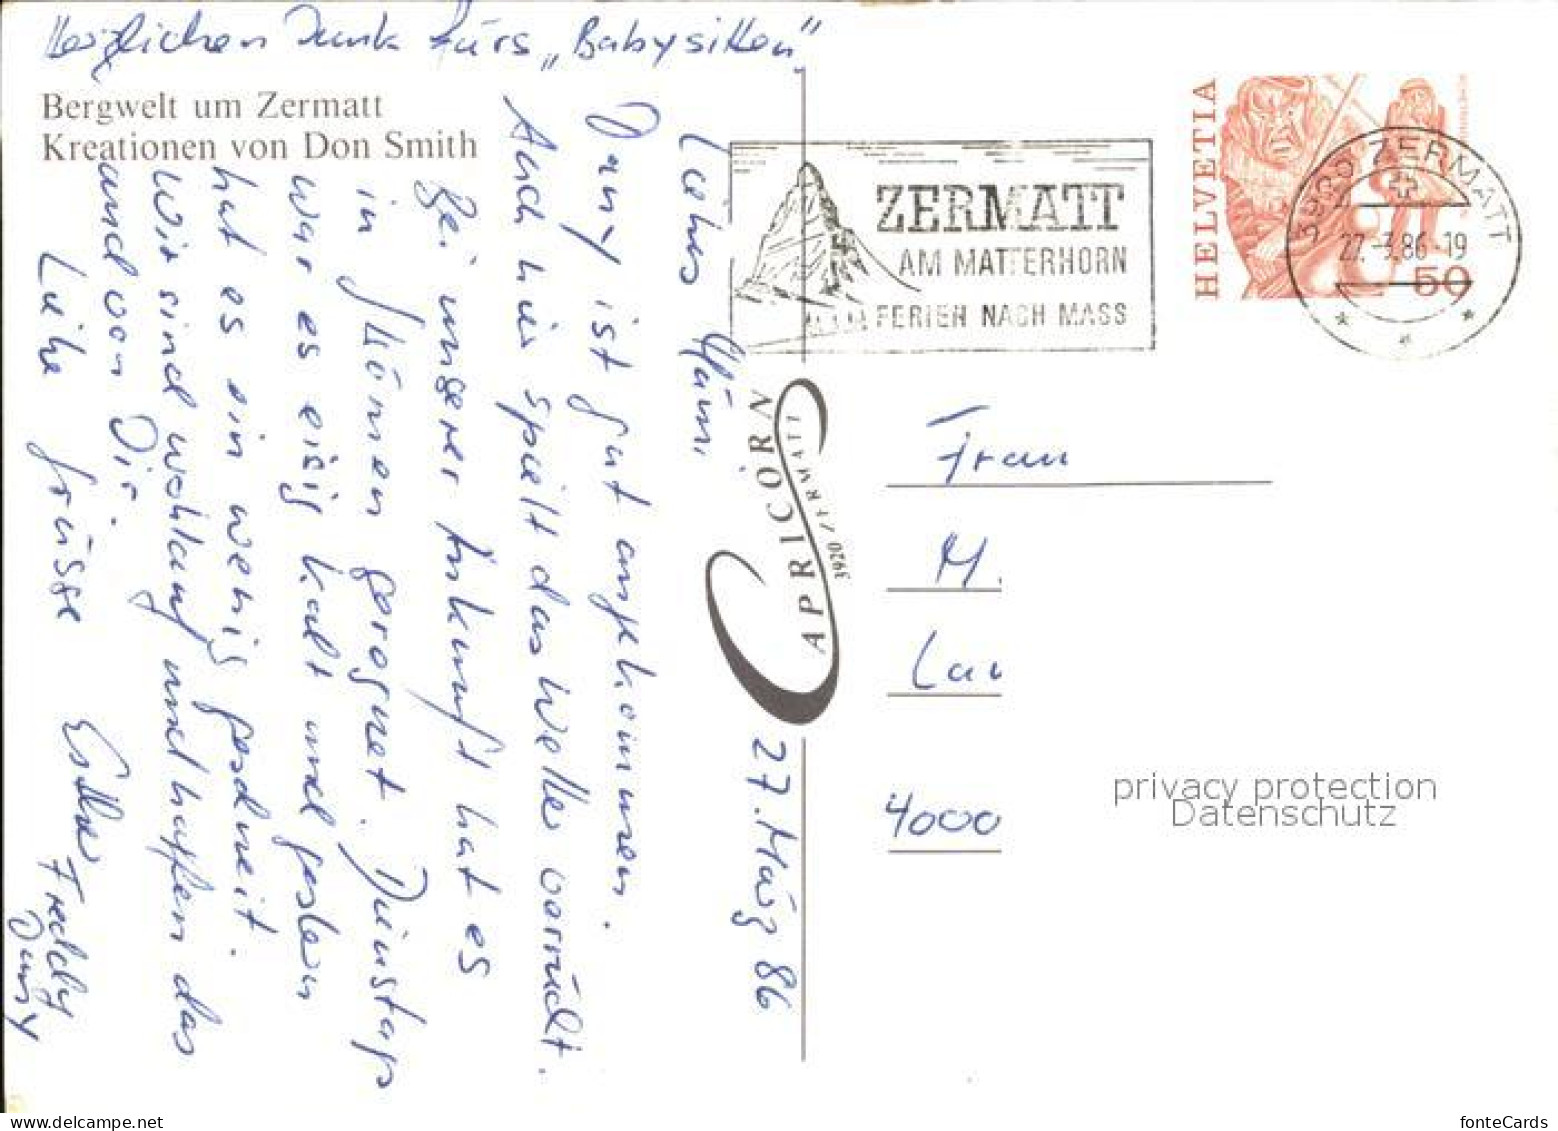 Herzlichen Dank fürs „Babysitten“
Bergwelt um Zermatt
Kreationen von Don Smith
27. März 86
Liebes Mämi,
Dany ist gut angekommen.
Auch hier spielt das Wetter verrückt.
Bei unserer Ankunft hat es
in Strömen geregnet. Dienstags
war es eisig kalt und gestern
hat es ein wenig geschneit.
Wir sind wohlauf und hoffen das
auch von Dir.
Liebe Grüsse
Esther
Freddy
Dany
CAPRICORN
3920 ZERMATT
ZERMATT
AM MATTERHORN
FERIEN NACH MASS
HELVETIA
50
3920 ZERMATT
27.-3.86-19
Frau
M.
Lau
4000
privacy protection
Datenschutz
www.delcampe.net
fonteCards